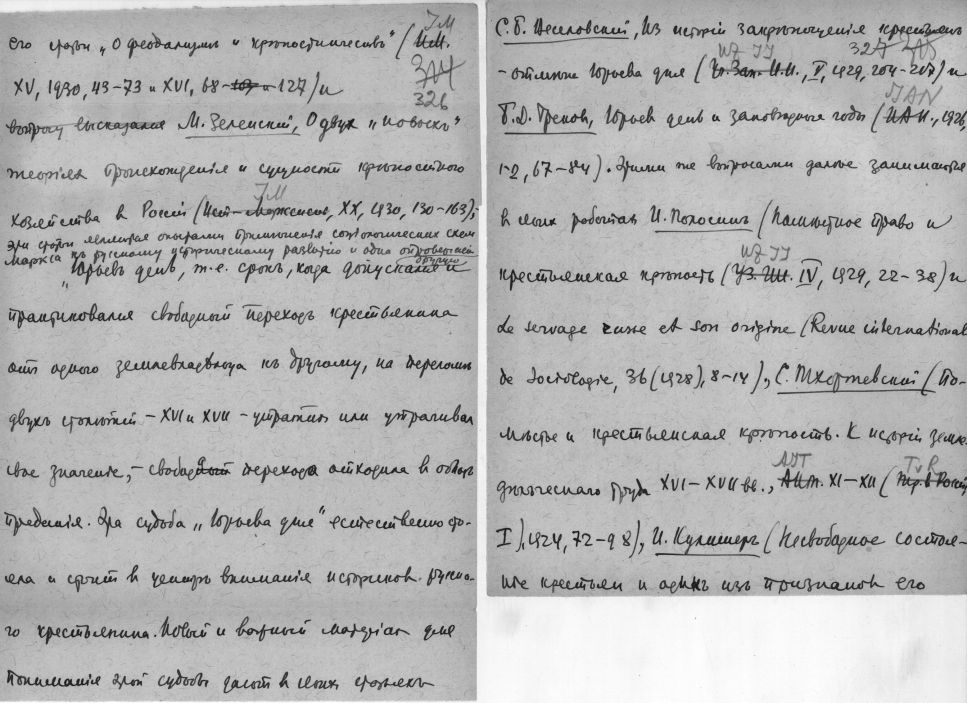 его статьи „О феодализмѣ и крѣпостничествѣ" (И.М. IM
XV, 1930, 43-73 и XVI, 68-103 и-127) и 324 326
вопросу высказался М. Зеленский, О двух „новыхъ"
теорiяхъ происхожденiя и сущности крѣпостного
хозяйства в Россiи (Ист-Марксист, IM XX, 1930, 130-163);-
эти статьи являются опытами примѣненiя соцiологических схем
Маркса къ русскому историческому развитiю и одна опровергает другую
„Юрьевъ день, т.е. срокъ, когда допускался и
практиковался свободный переходъ крестьянина
отъ одного землевладѣльца къ другому, на переломѣ
двухъ столѣтiй - XVI и XVII - утратилъ или утрачивал
свое значенiе, - свобода перехода отходила в область
преданiя. Эта судьба „Юрьева дня" естественно сто-
яла и стоитъ в центрѣ вниманiя историков русска-
го крестьянина. Новый и важный матерiал для
пониманiя этой судьбы даютъ в своихъ статьяхъ
С.Б. Веселовский, Из исторiи закрѣпощенiя крестьянъ
327 325
- отмѣна Юрьева дня (Уч. Зап. И.И., UZ II V, 1929, 204-217) и
Б.Д. Греков, Юрьев день и заповѣдные годы (ИАН., IAN 1926,
1-2, 67-84). Этими же вопросами далее занимаются
в своих работах И. Полосинъ (Помѣстное право и
крестьянская крѣпость (УЗ. ИИ. UZ II IV, 1929, 22-38) и
Le servage russe et son origine (Revue international
de Sociologie, 36 (1928), 8-14)., С. Тхоржевский (По-
мѣстье и крестьянская крѣпость. К исторiи земле
дѣльческаго труда XVI-XVII вв., Аит. AIT XI-XII (Тр. в Россiи TvR
I), 1924, 72-98), И. Кулишеръ (Несвободное состоя-
нiе крестьян и одинъ изъ признаков его